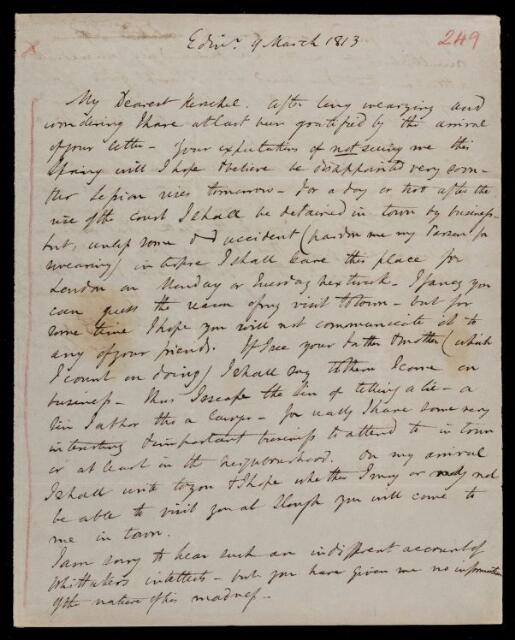 Edinr. 9 March 1813
249
My Dearest Herschel. After long wearying and
wondering I have at last been gratified by the arrival
of your letter - Your expectation of not seeing me this
Spring will I hope & believe be disappointed very soon -
The Session rises tomorrow - For a day or two after the
rise of the Court I shall be detained in town by business -
but, unless some d—d accident (pardon me my Parson for
swearing) interpose I shall leave this place for
London on Monday or Tuesday next week - I fancy you
can guess the reason of my visit to town - but for
some time I hope you will not communicate it to
any of your friends. If I see your father & mother (which
I count on doing) I shall say to them I come on
business - Thus I escape the sin of telling a lie - a
sin I abhor tho a Lawyer - for really I have some very
interesting & important business to attend to in town
or at least in the neighbourhood. On my arrival
I shall write to you & I hope whether I may or may not
be able to visit you at Slough you will come to
me in town.
I am sorry to hear such an indifferent account of
Whittakers intellects - but you have given me no information
of the nature of his madness -